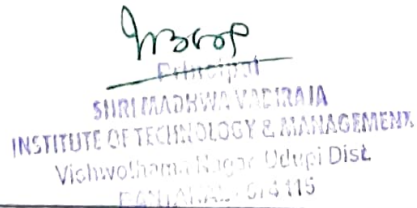 Principal
SHRI MADHWA VADIRAJA
INSTITUTE OF TECHNOLOGY & MANAGEMENT
Vishwothama Nagar Udupi Dist.
574115